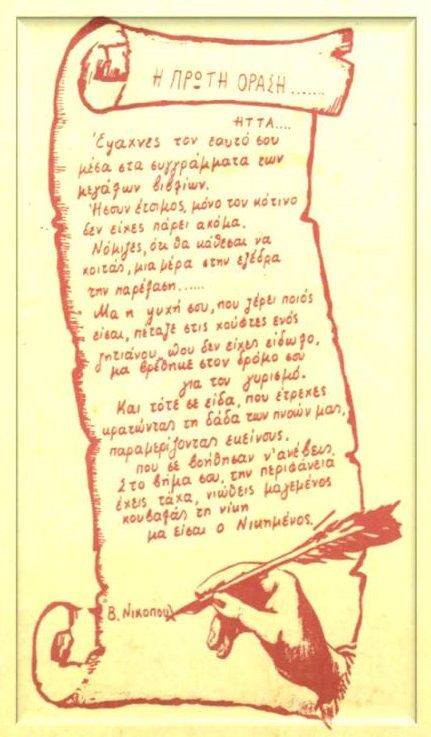 Η ΠΡΩΤΗ ΟΡΑΣΗ.......
ΗΤΤΑ....
Έψαχνες τον εαυτό σου
μέσα στα συγγράμματα των
μεγάλων βιβλίων.
Ήσουν έτοιμος, μόνο τον κότινο
δεν είχες πάρει ακόμα.
Νόμιζες, ότι θα κάθεσαι να
κοιτάς, μια μέρα στην εξέδρα
την παρέλαση......
Μα η ψυχή σου, που ξέρει ποιός
είσαι, πέταξε στις χούφτες ενός
ζητιάνου, που δεν είχες είδωλο,
μα βρέθηκε στον δρόμο σου
για τον γυρισμό.
Και τότε σε είδα, που έτρεχες
κρατώντας τη δάδα των πνοών μας,
παραμερίζοντας εκείνους,
που σε βοήθησαν ν' ανέβεις.
Στο βήμα σου, την περιφάνεια
έχεις τάχα, νιώθεις μαγεμένος
κουβαλάς τη νίκη
μα είσαι ο Νικημένος.
Β. Νικοπουλ